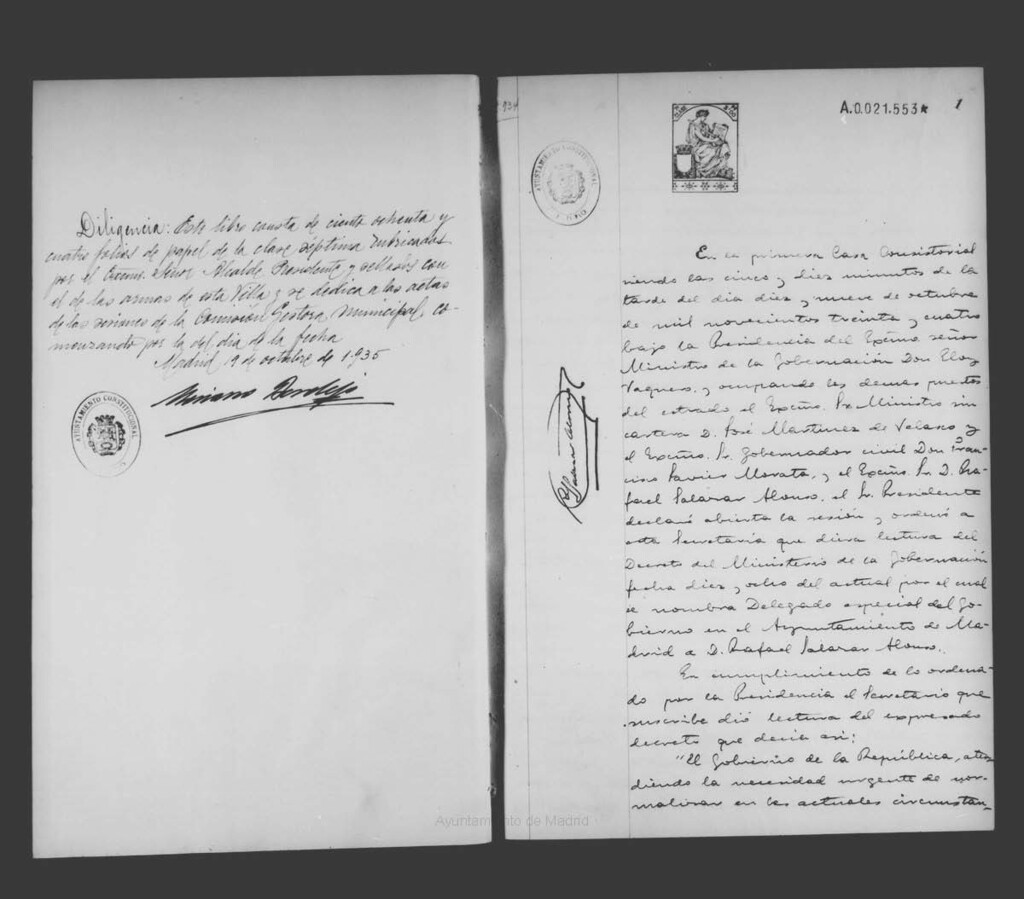 Diligencia: Este libro consta de ciento ochenta y
cuatro folios de papel de la clase séptima rubricados
por el Excmo. Señor Alcalde Presidente y sellados con
el de las armas de esta Villa y se dedica a las actas
de las sesiones de la Comision Gestora Municipal co-
menzando por la del dia de la fecha
Madrid 19 de octubre de 1935
Mariano Berdejo
AYUNTAMIENTO CONSTITUCIONAL
AYUNTAMIENTO CONSTITUCIONAL
A.0.021.553*
1
R Salazar Alonso
En la primera Casa Consistorial
siendo las cinco y diez minutos de la
tarde del dia diez y nueve de octubre
de mil novecientos treinta y cuatro
bajo la Presidencia del Excmo señor
Ministro de la Gobernación Don Eloy
Vaquero, y ocupando los demas puestos
del estrado el Excmo. Sr Ministro sin
cartera D. José Martinez de Velasco y
el Excmo. Sr. Gobernador civil Don Fran-
cisco Javier Morata, y el Excmo Sr. D. Ra-
fael Salazar Alonso, el Sr. Presidente
declaró abierta la sesión y ordenó a
esta Secretaria que diera lectura del
Decreto del Ministerio de la Gobernación
fecha diez y ocho del actual por el cual
se nombra Delegado especial del Go-
bierno en el Ayuntamiento de Ma-
drid a D. Rafael Salazar Alonso.
En cumplimiento de lo ordena-
do por la Presidencia el Secretario que
suscribe dió lectura del expresado
decreto que decia asi:
"El Gobierno de la República, aten
diendo la necesidad urgente de nor-
malizar en las actuales circunstan-
Ayuntamiento de Madrid